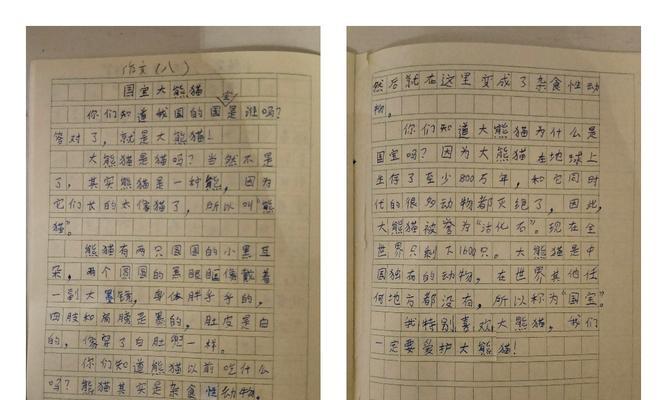 作文(八)
国宝大熊猫
宝
你们知道我国的国是谁吗?
答对了，就是大熊猫!
大熊猫是猫吗?当然不是
了，其实熊猫是一种熊，因为
它们长的太像猫了，所以叫"熊
猫"。
熊猫有两只圆圆的小黑耳
朵，两个圆圆的黑眼眶像戴着
一副大墨镜，身体胖乎乎的，
四肢和肩膀是黑的，肚皮是白
的，像穿了白肚兜一样。
你们知道熊猫以前吃什么
吗?熊猫其实是杂食性动物。
然后就在这里变成了杂食性动
物。
你们知道大熊猫为什么是
国宝吗?因为大熊猫在地球上
生存了至少800万年，和它同时
代的很多动物都灭绝了，因此，
大熊猫被誉为"活化石"。现在全
世界只剩下1600只。大熊猫是中
国独有的动物，在世界其他任
何地方都没有，所以称为"国宝"。
我特别喜欢大熊猫，我们
一定要爱护大熊猫!